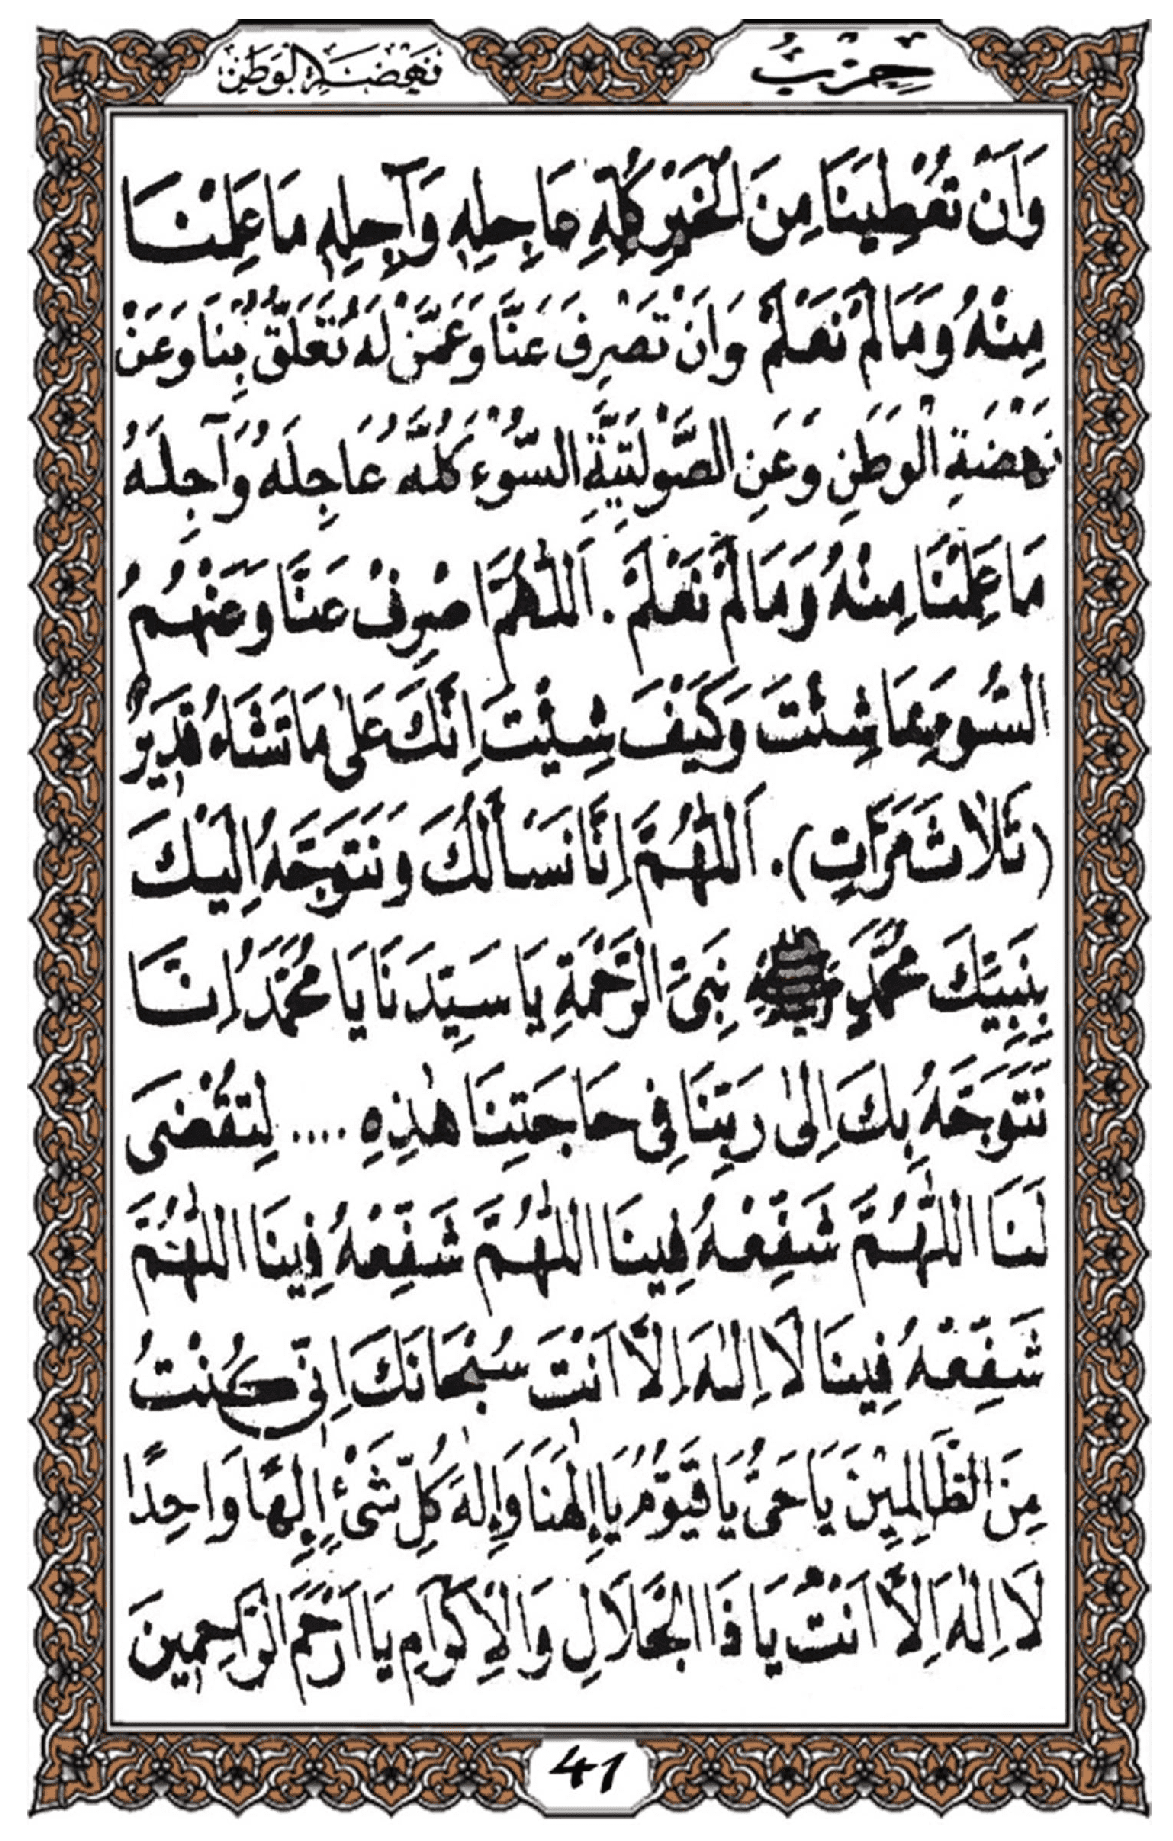 حِزْبُ نَهْضَةِ الْوَطَنِ
وَاَنْ تُعْطِيَنَا مِنَ الْخَيْرِ كُلِّهِ عَاجِلِهِ وَآجِلِهِ مَا عَلِمْنَا
مِنْهُ وَمَا لَمْ نَعْلَمْ وَاَنْ تَصْرِفَ عَنَّا وَعَمَّنْ لَهُ تَعَلُّقٌ بِنَا وَعَنْ
نَهْضَةِ الْوَطَنِ وَعَنِ الصَّوْلَتِيَّةِ السُّوْءَ كُلَّهُ عَاجِلَهُ وَآجِلَهُ
مَا عَلِمْنَا مِنْهُ وَمَا لَمْ نَعْلَمْ . اَللّٰهُمَّ اصْرِفْ عَنَّا وَعَنْهُمُ
السُّوءَ بِمَا شِئْتَ وَكَيْفَ شِئْتَ اِنَّكَ عَلٰى مَا تَشَاءُ قَدِيْرٌ
(ثَلَاثَ مَرَّاتٍ). اَللّٰهُمَّ اِنَّا نَسْأَلُكَ وَنَتَوَجَّهُ اِلَيْكَ
بِنَبِيِّكَ مُحَمَّدٍ ﷺ نَبِيِّ الرَّحْمَةِ يَا سَيِّدَنَا يَا مُحَمَّدُ اِنَّا
نَتَوَجَّهُ بِكَ اِلٰى رَبِّنَا فِي حَاجَتِنَا هٰذِهِ .... لِتُقْضَى
لَنَا اللّٰهُمَّ شَفِّعْهُ فِينَا اللّٰهُمَّ شَفِّعْهُ فِينَا اللّٰهُمَّ
شَفِّعْهُ فِينَا لَا اِلٰهَ اِلَّا اَنْتَ سُبْحَانَكَ اِنِّي كُنْتُ
مِنَ الظَّالِمِيْنَ يَا حَيُّ يَا قَيُّوْمُ يَا إِلٰهَنَا وَإِلٰهَ كُلِّ شَيْءٍ إِلٰهًا وَاحِدًا
لَا اِلٰهَ اِلَّا اَنْتَ يَا ذَا الْجَلَالِ وَالْاِكْرَامِ يَا اَرْحَمَ الرَّاحِمِينَ
41